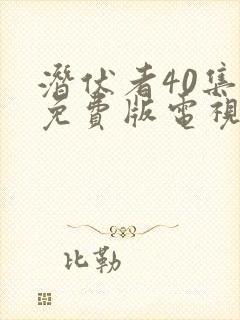 潛伏者40集
免費版電視
比勒